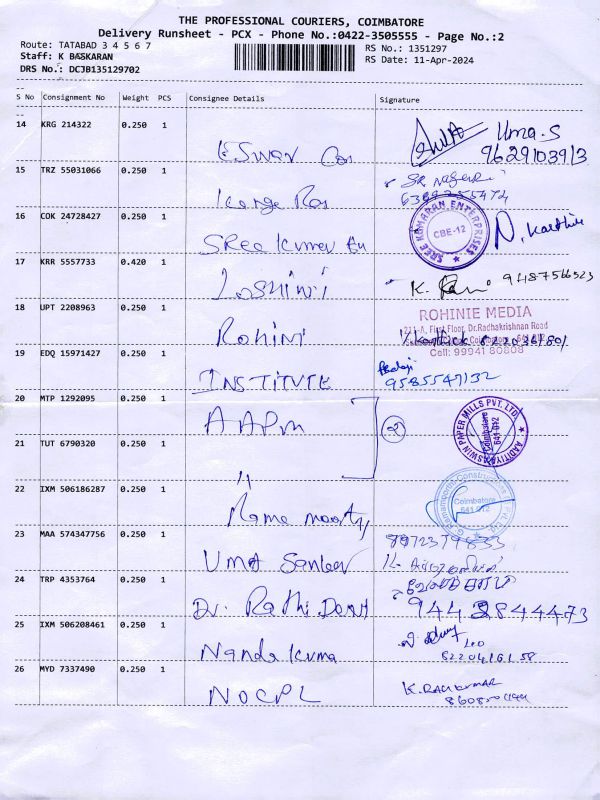 THE PROFESSIONAL COURIERS, COIMBATORE
Delivery Runsheet - PCX - Phone No.:0422-3505555 - Page No.:2
Route: TATABAD 3 4 5 6 7
RS No.: 1351297
Staff: K BASKARAN
RS Date: 11-Apr-2024
DRS No.: DCJB135129702
S No Consignment No Weight PCS Consignee Details Signature
14 KRG 214322 0.250 1
Eswar Uma.S
9629103913
15 TRZ 55031066 0.250 1
16 COK 24728427 0.250 1
SREE KUMARAN ENTERPRISES
CBE-12
Sree Kumar En N. Karthik
17 KRR 5557733 0.420 1
Loshini K. 9487566523
18 UPT 2208963 0.250 1
ROHINIE MEDIA
211-A, First Floor, Dr.Radhakrishnan Road
Rohini Karthick
Cell: 99941 80808
19 EDQ 15971427 0.250 1
INSTITUTE 9585547132
20 MTP 1292095 0.250 1
AAPM 2
AADITYA ASWIN PAPER MILLS PVT. LTD.
Coimbatore
641 012
21 TUT 6790320 0.250 1
"
22 IXM 506186287 0.250 1
Rama moorthy
Coimbatore
641 012
23 MAA 574347756 0.250 1
Uma
24 TRP 4353764 0.250 1
Dr. Rathi
25 IXM 506208461 0.250 1
Nanda Kuma
26 MYD 7337490 0.250 1
NOCPL K. RAJKUMAR